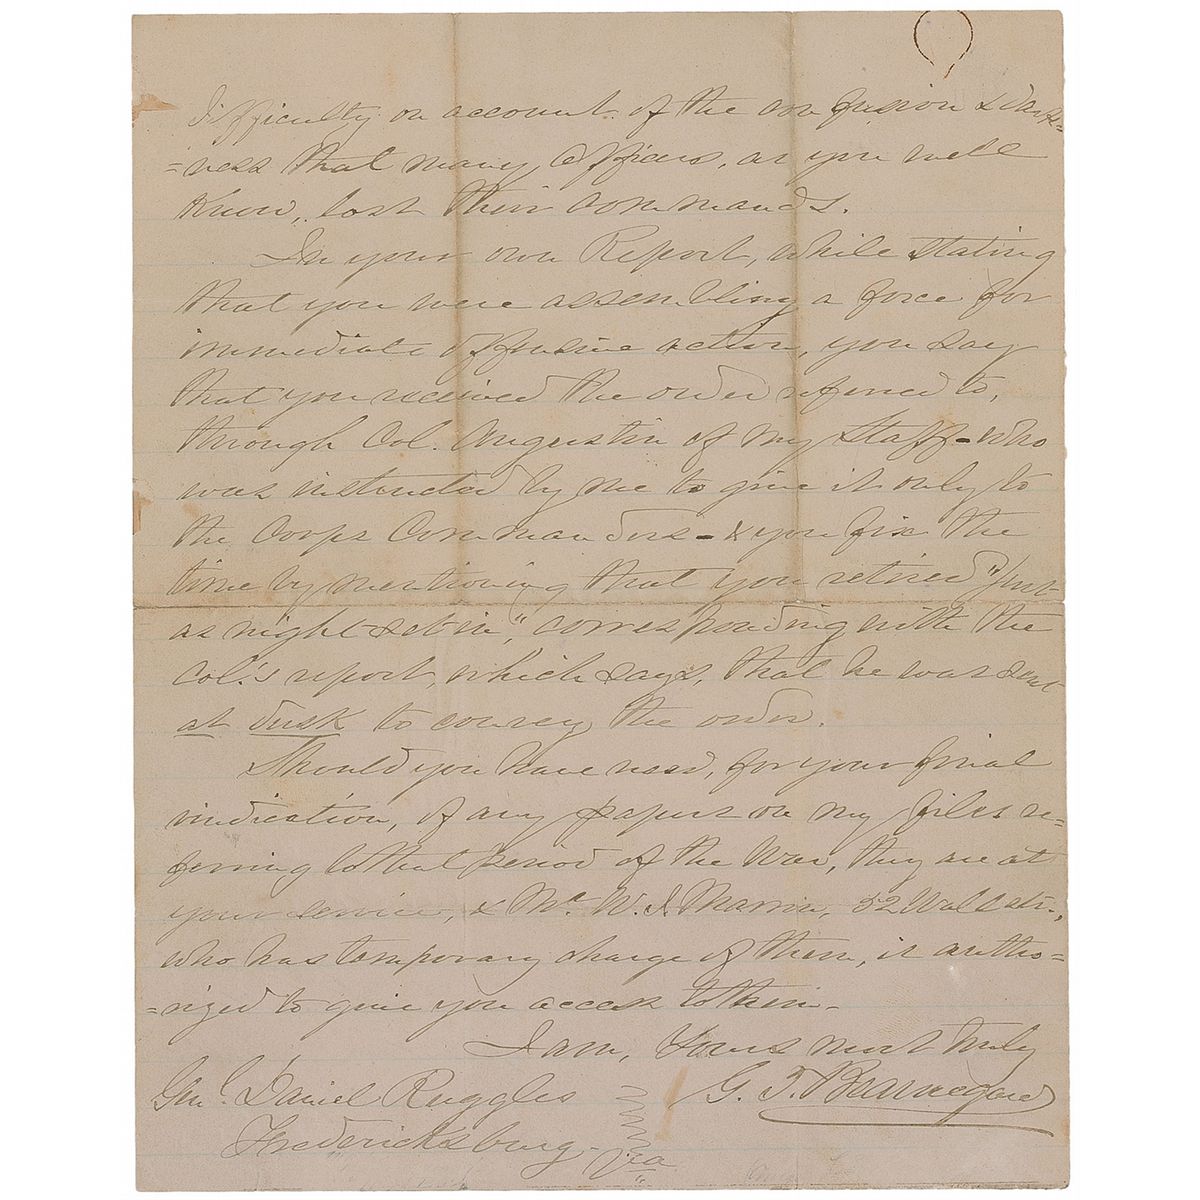 difficulty on account of the confusion & dark=
=ness that many officers, as you well
know, lost their commands.
In your own Report, while stating
that you were assembling a force for
immediate offensive action, you say
that you received the order referred to,
through Col. Augustin of my Staff - who
was instructed by me to give it only to
the Corps Commanders - & you fix the
time by mentioning that you retired "just
as night set in", corresponding with the
Col.'s report, which says, that he was sent
at dusk to convey the order.
Should you have need, for your final
vindication, of any papers on my files re=
ferring to that period of the War, they are at
your service, & Mr. W. J. 52 Wall str.,
who has temporary charge of them, is autho=
=rized to give you access to them -
I am, Yours most truly
G. T. Beauregard
Genl. Daniel Ruggles
Fredericksburg - Va